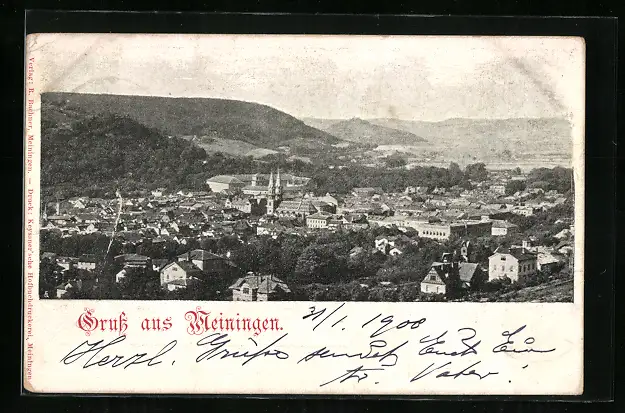 Verlag: R. Buchner, Meiningen. — Druck: Keyssner'sche Hofbuchdruckerei, Meiningen
Gruß aus Meiningen.
31/1 1900
Herzl. Grüße sendet Euch Euer
tr. Vater.